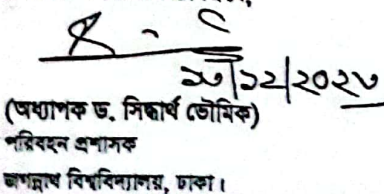 (অধ্যাপক ড. সিদ্ধার্থ ভৌমিক)
পরিবহন প্রশাসক
জগন্নাথ বিশ্ববিদ্যালয়, ঢাকা।